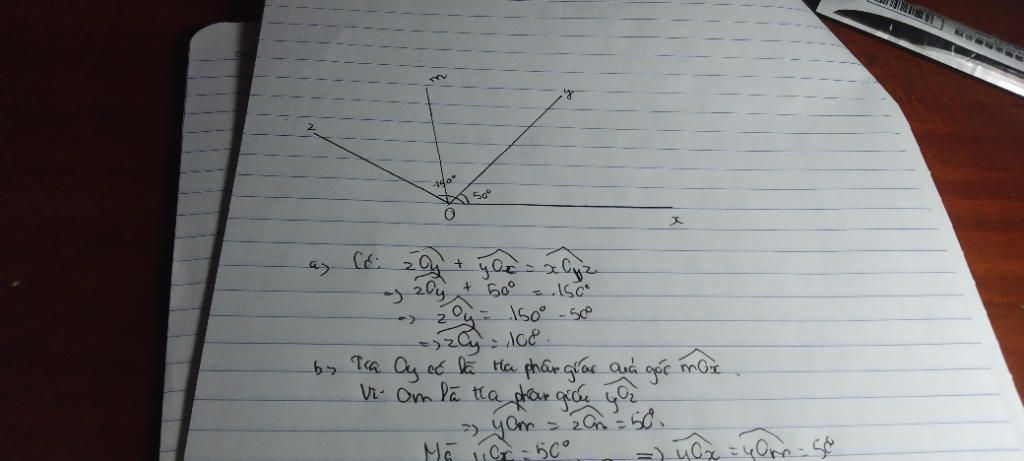 m
y
z
150°
50°
O
x
a, Có: zOy + yOx = xOyz
=> zOy + 50° = 150°
=> zOy = 150° - 50°
=> zOy = 100°.
b, Tia Oy có là tia phân giác của góc mOx.
Vì Om là tia phân giác yOz
=> yOm = zOm = 50°.
Mà yOx = 50° => yOx = yOm = 50°